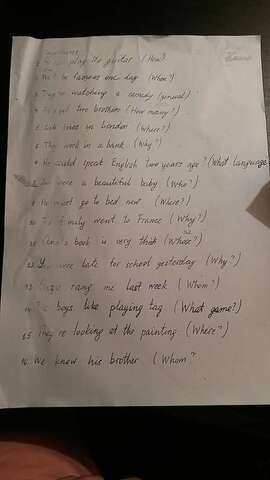 play the guitar (How?)
be famous one day (When?)
They're watching a comedy (general)
two brothers (How many?)
lives in London (Where?)
They work in a bank (Why?)
He could speak English two years ago? (What language
were a beautiful baby (Who?)
He must go to bed now (Where?)
family went to France (Why?)
book is very thick (Whose?)
You were late for school yesterday (Why?)
rang me last week (Whom?)
boys like playing tag (What game?)
15. They're looking at the painting (Where?)
16. We know his brother (Whom?